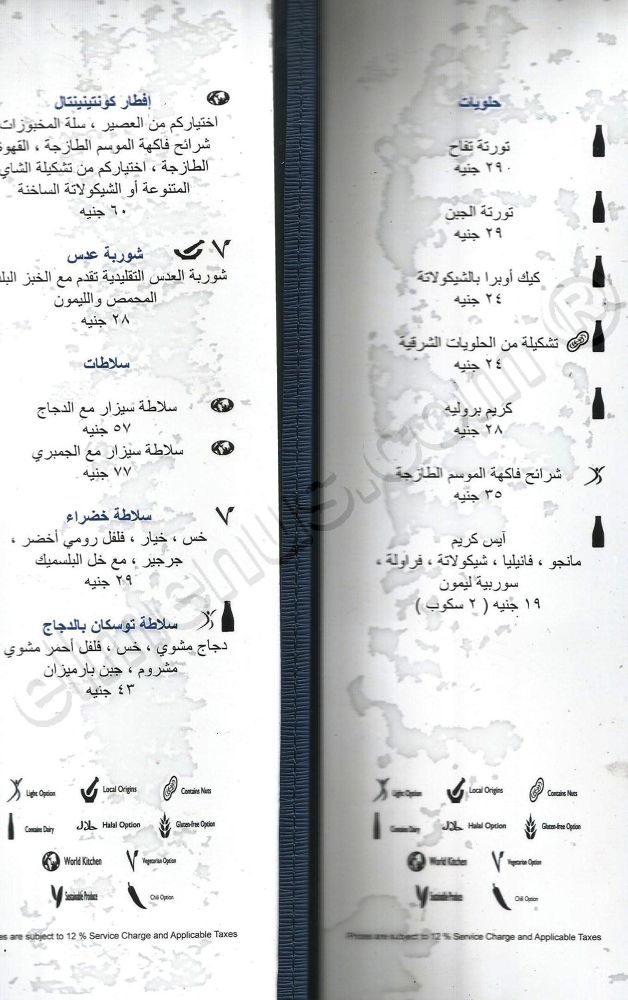 إفطار كونتيننتال
اختياركم من العصير ، سلة المخبوزات
شرائح فاكهة الموسم الطازجة ، القهوة
الطازجة ، اختياركم من تشكيلة الشاي
المتنوعة أو الشيكولاتة الساخنة
٦٠ جنيه
شوربة عدس
شوربة العدس التقليدية تقدم مع الخبز
المحمص والليمون
٢٨ جنيه
سلاطات
سلاطة سيزار مع الدجاج
٥٧ جنيه
سلاطة سيزار مع الجمبري
٧٧ جنيه
سلاطة خضراء
خس ، خيار ، فلفل رومي أخضر ،
جرجير ، مع خل البلسميك
٢٩ جنيه
سلاطة توسكان بالدجاج
دجاج مشوي ، خس ، فلفل أحمر مشوي
مشروم ، جبن بارميزان
٤٣ جنيه
Light Option Local Origins Contains Nuts
Contains Dairy حلال Halal Option Gluten-free Option
World Kitchen Vegetarian Option
Sustainable Produce Chili Option
are subject to 12 % Service Charge and Applicable Taxes
حلويات
تورتة تفاح
٢٩ جنيه
تورتة الجبن
٢٩ جنيه
كيك أوبرا بالشيكولاتة
٢٤ جنيه
تشكيلة من الحلويات الشرقية
٢٤ جنيه
كريم بروليه
٢٨ جنيه
شرائح فاكهة الموسم الطازجة
٣٥ جنيه
آيس كريم
مانجو ، فانيليا ، شيكولاتة ، فراولة ،
سوربية ليمون
١٩ جنيه ( ٢ سكوب )
Light Option Local Origins Contains Nuts
Contains Dairy حلال Halal Option Gluten-free Option
World Kitchen Vegetarian Option
Sustainable Produce Chili Option
Prices are subject to 12 % Service Charge and Applicable Taxes
elmenus.com ®